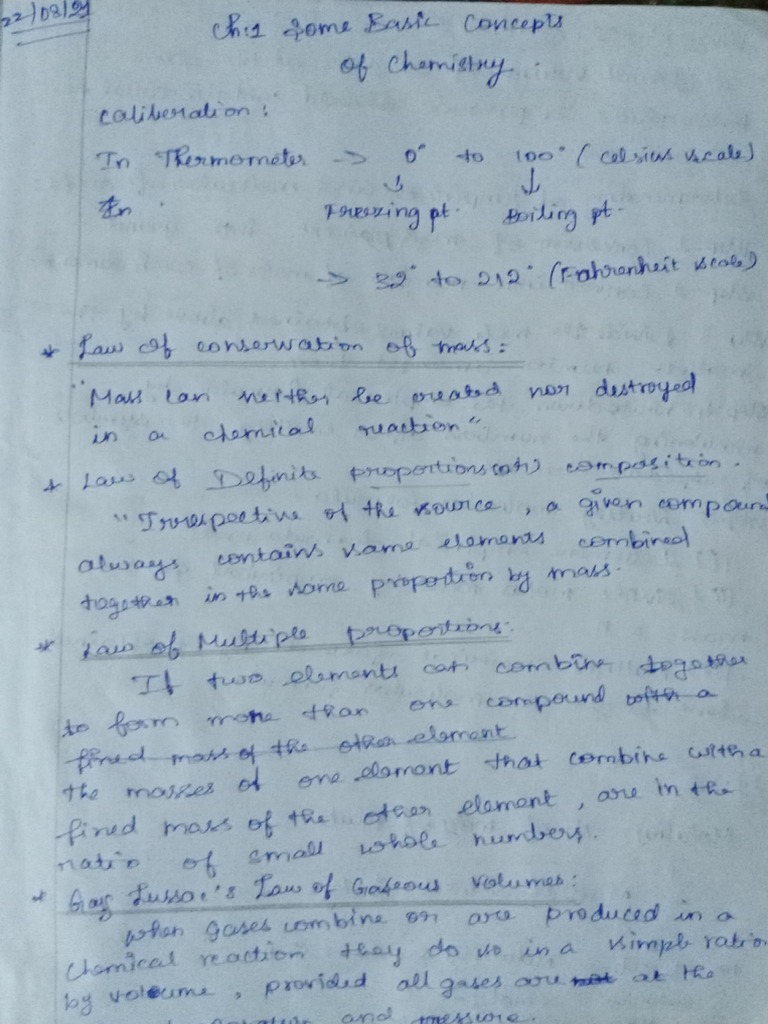 22/08/21
Ch:1 Some Basic Concepts
of Chemistry.
Caliberation:
In Thermometer -> 0° to 100° (celsius scale)
↓ ↓
In Freezing pt. Boiling pt.
-> 32° to 212° (Fahrenheit scale)
* Law Of conservation of mass:
"Mass can neither be created nor destroyed
in a chemical reaction".
* Law of Definite proportions (or) composition.
"Irrespective of the source, a given compound
always contains same elements combined
together in the same proportion by mass.
* Law of Multiple proportions:
If two elements can combine together
to form more than one compound with a
fixed mass of the other element
the masses of one element that combine with a
fixed mass of the other element, are in the
ratio of small whole numbers.
* Gay Lussac's Law of Gaseous volumes:
When gases combine or are produced in a
chemical reaction they do so in a simple ratio
by voleume, provided all gases are not at the
and pressure.